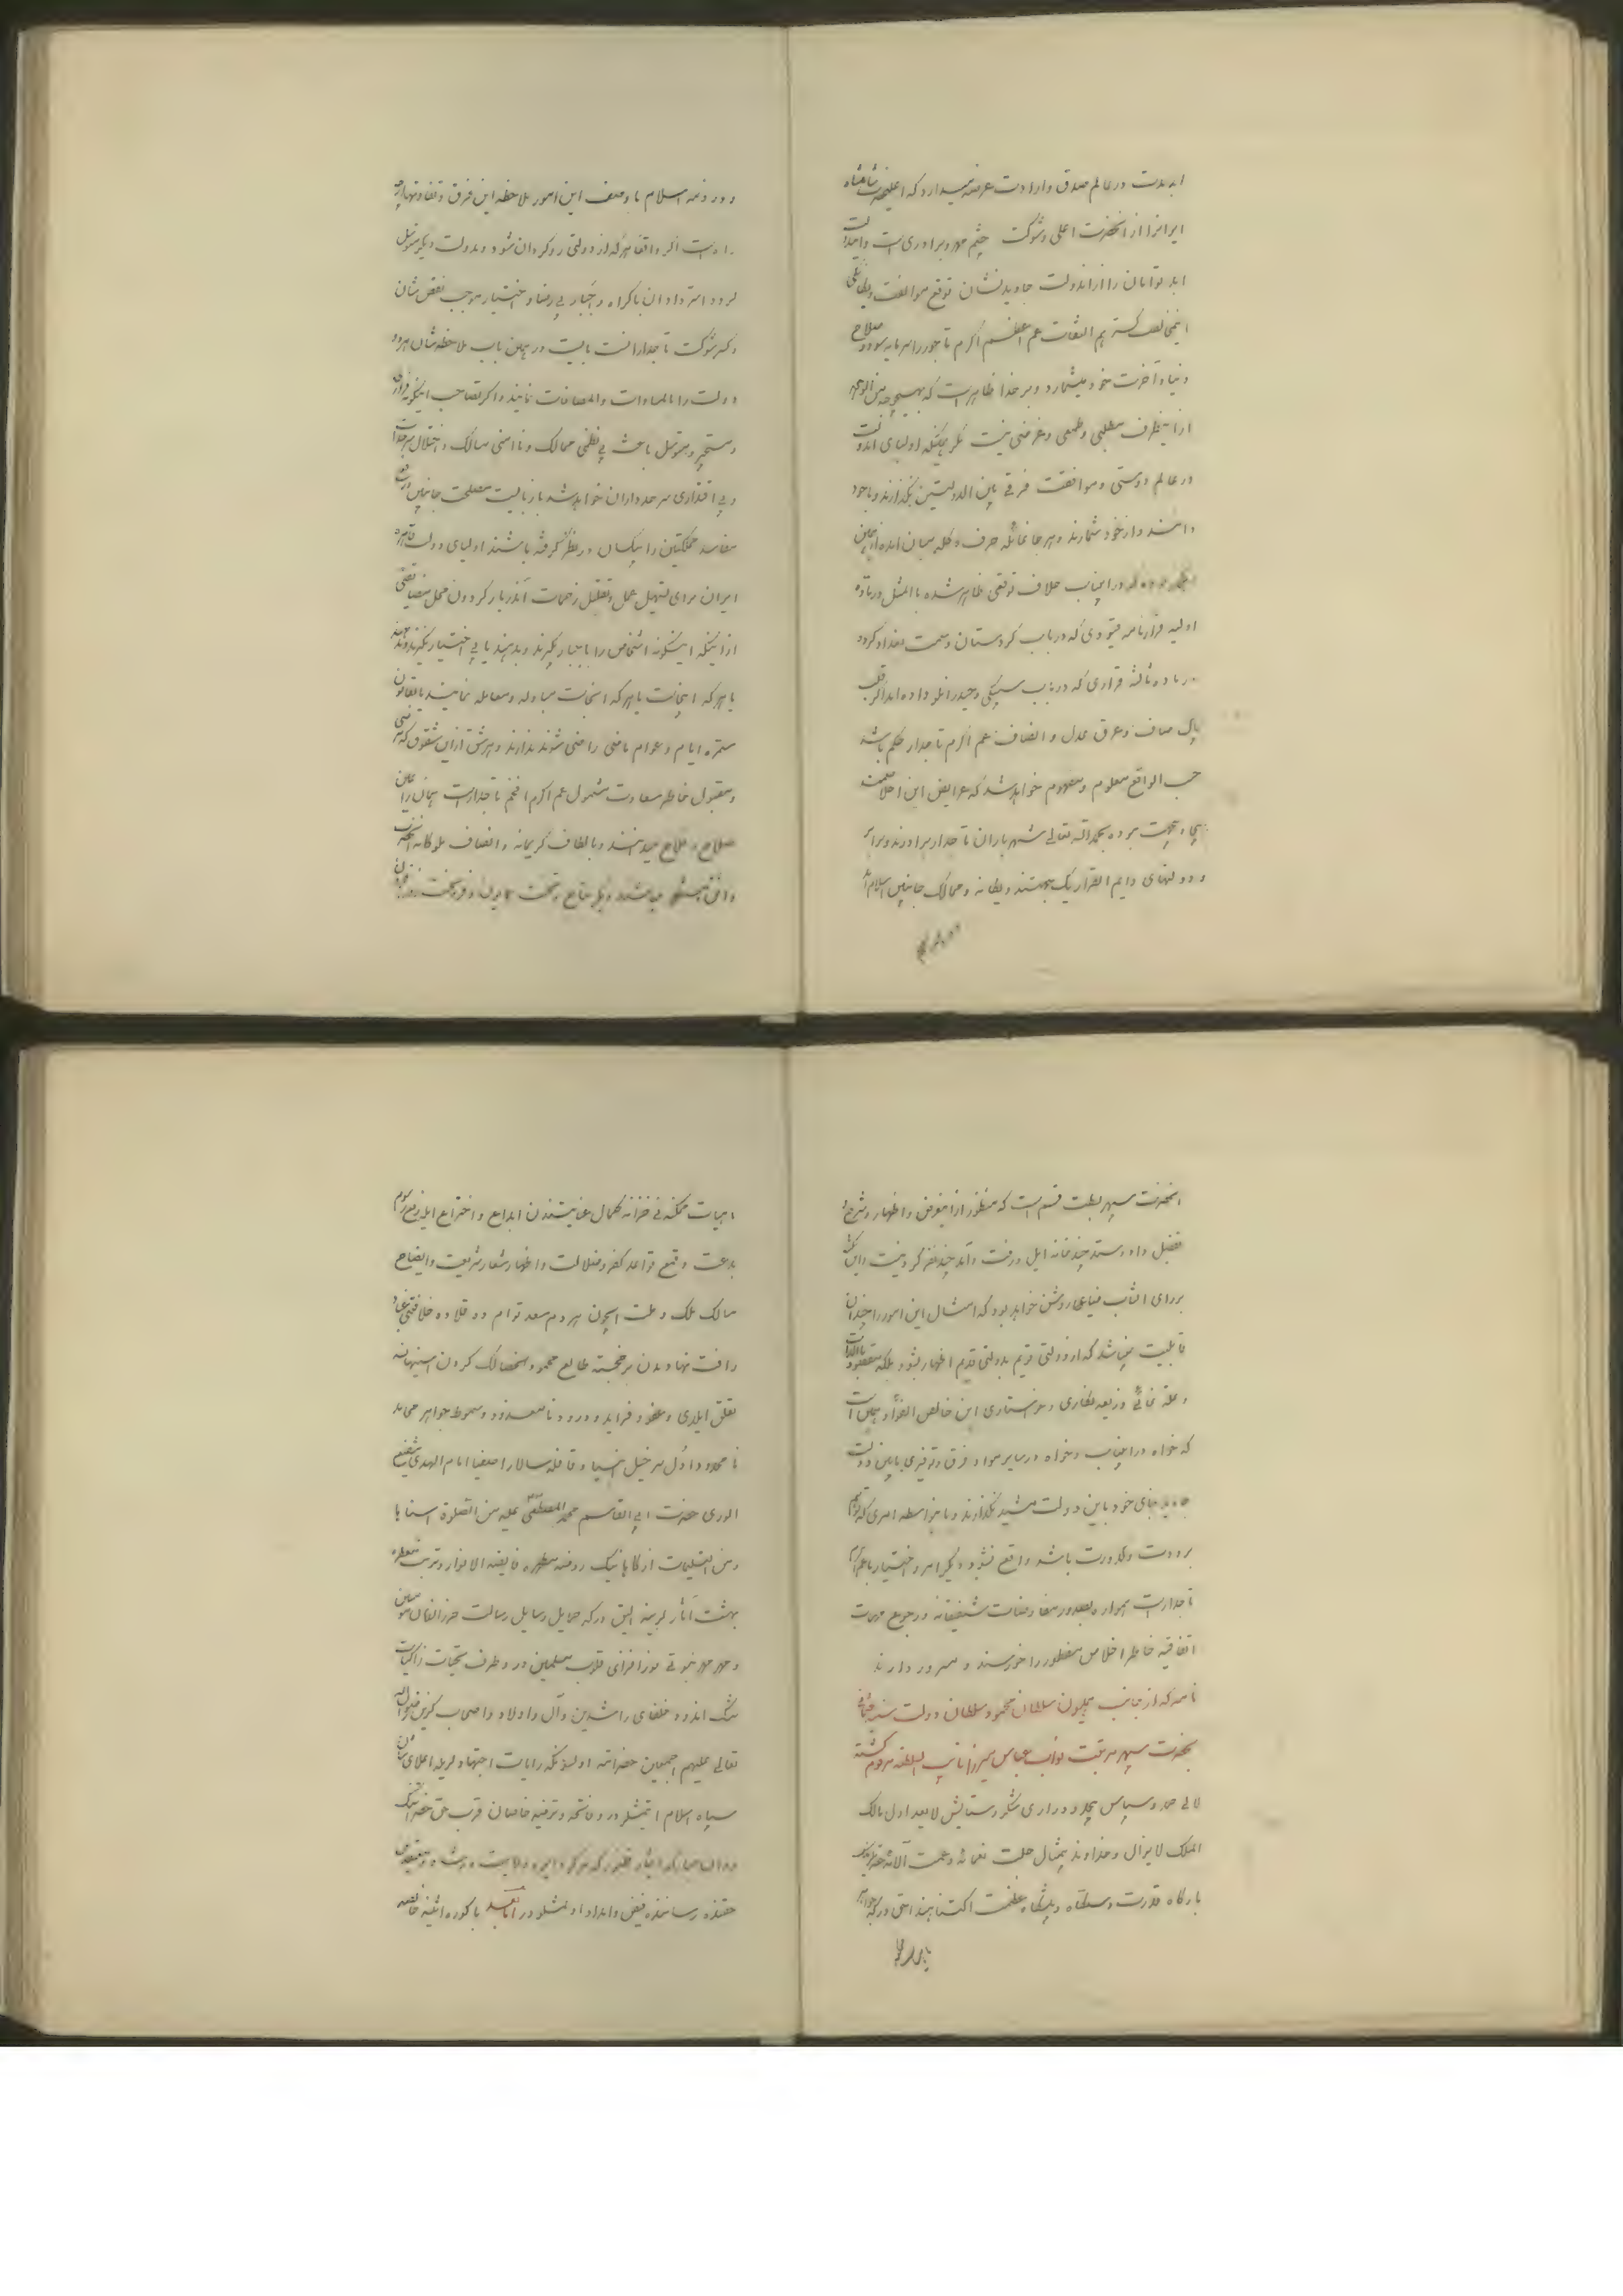 ابد مدت در عالم صدق و ارادت عرضه میدارد که اعلیحضرت شاهنشاه
ایرانرا از انحضرت اعلی و شوکت چشم مهر و برادری است و این دولت
ابد توامان را از اندولت جاوید نشان توقع موافقت و
هم التفات عم اعظم اکرم تاجور را سرمایه سود و صلاح
دنیا و آخرت خود میشمارد و بر خدا ظاهر است که بهیچوجه من الوجوه
ازاینطرف مطلبی و طمعی و غرضی نیست مگر همینکه اولیای اندولت
در عالم دوستی و موافقت فرقی بین الدولتین نگذارند و با خود
دانند و از خود شمارند و هر جا غائله حرف و کله بمیان امده از همین
در اینباب خلاف توقعی ظاهر شده باالمثل در ماده
اولیه قرارنامه قیودی که در باب کردستان و سمت بغداد کرده
در ماده ثالثه قراری که در باب سیبکی و حیدرانلو داده اند اگر قلب
پاک صاف و عرق عدل و انصاف عم اکرم تاجدار حکم باشد
حسب الواقع معلوم و مفهوم خواهد شد که عرایض این اخلاصمند
بیجا و تهمت نبوده بحمدالله تعالی شهریاران تاجدار برادرند و برابر
و دولتهای دایم القرار یک جهتند و یکانه و ممالک جانبین اسلام اند
و روضه اسلام با وصف این امور ملاحظه این فرق و تفاوتها چرا
است اگر واقعا هر که از دولتی روکردان شود و بدولت دیگر متوسل
گردد استرداد آن باکراه و اجبار بی رضا و اختیار موجب نقص شان
و کسر شوکت تاجدارانست بایست در همین باب ملاحظه شان هر دو
دولت را بالمساوات والمصافات نمایند و اگر تصاحب اینگونه فراری
و مستجیر و متوسل باعث بی نظمی ممالک و ناامنی مسالک و اختلال سرحدات
و بی اقتداری سرحدداران خواهد شد باز بایست مصلحت جانبین و
مفاسد مملکتین را یکسان در نظر گرفته باشند اولیای دولت قاهره
ایران برای تسهیل عمل و تقلیل زحمات اندربار کردون محمل مضایقتی
ازاینکه اینگونه اشخاص را باجبار بگیرند و بدهند یا بی اختیار بگیرند و ندهند
یا هر که اینجاست با هر که انجاست مبادله و معامله نمایند یا بقانون
مستمره ایام و عوام ماضی راضی شوند ندارند و هر شق ازاین شقوق که مرضی
و مقبول خاطر سعادت شمول عم اکرم افخم تاجدارست همان را عین
صلاح و فلاح میدانند و بالطاف کریمانه و انصاف ملوکانه انحضرت
انحضرت سپهر بسطت قسم است که منظور ازاینعرض و اظهار و شرح و
تفصیل داد و ستد چند خانه ایل و رفت و آمد چند نفر کرد نیست و این نکته
بر رای اقتاب ضیای روشن خواهد بود که امثال این امور را چندان
قابلیت نمیباشد که از دولتی قویم بدولتی قدیم اظهار شود بلکه مقصود بالذات
و علت غائی ذریعه نگاری و خواستاری این خالص الفواد همین است
که خواه دراینباب و خواه در سایر مواد فرق و توفیری مابین دولت
جاوید بنای خود با این دولت مشید نگذارند و بنابواسطه امری که توهم
برودت و کدورت باشد واقع نشود دیگر امر و اختیار با عم اکرم
تاجدارست همواره بصدور مفاوضات شفیقانه و رجوع مهمات
اتفاقیه خاطر اخلاص مفطور را خورسند و مسرور دارند
نامه که از جانب همایون سلطان محمود سلطان دولت سنیه عثمانی
بحضرت سپهر مرتبت نواب عباس میرزا نایب السلطنه مرقوم گشته
لالی حمد و سپاس بیحد و دراری شکر و ستایش لایعد اول مالک
الملک لایزال و خداوند بیمثال جلت نعمائه و عمت آلائه حضرتلرینک
بارگاه قدرت دستگاه و پیشگاه عظمت اکتناهنه الیق درکه
هیات ممکنه نی خزانه کمال عنایتندن ابداع و اختراع ایلیوب رسوم
بدعت و قمع قواعد کفر و ضلالت و اظهار شعار شریعت و ایضاح
مسالک ملک و ملت ایچون هر دم سعد توام ده قلاده خلافتی
رافت نهادندن بر خجسته طالع محمود الخصالک کردن استیهالنه
تعلیق ایلدی و عقود فراید درود نامعدود و سموط جواهر محامد
نامحدود اول سرخیل انبیا و قافله سالار اصفیا امام الهدی شفیع
الوری حضرت ابی القاسم محمد المصطفی علیه من الصلوة اسناها
ومن التسلیمات ازکاها نیک روضه مطهره فایقة الانوار و تربت معطره
بهشت آثارلرینه الیق درکه حمایل رسایل رسالت حرز الامان مومنین
و مهر مهر نبوتی نورافزای قلوب مسلمین در و طرف تحیات زاکیات
شک اندود خلفای راشدین و آل و اولاد و اصحاب گزین رضوان الله
تعالی علیهم اجمعین حضراتنه اولسونکه رایات اجتهادلریله اعلای شان
سپاه اسلام ایتمشلردر و فاتحه و ترفیه خاصان قرب حق حضراتنک